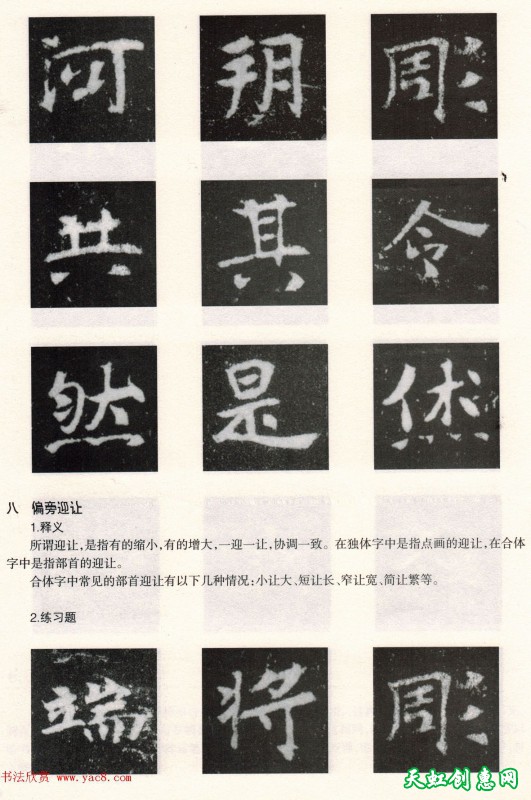 河 彫
共 其 令
然 是
八 偏旁迎让
1.释义
所谓迎让,是指有的缩小,有的增大,一迎一让,协调一致。在独体字中是指点画的迎让,在合体
字中是指部首的迎让。
合体字中常见的部首迎让有以下几种情况:小让大、短让长、窄让宽、简让繁等。
2.练习题
端 将 彫
书法欣赏 www.yac8.com
天虹创惠网